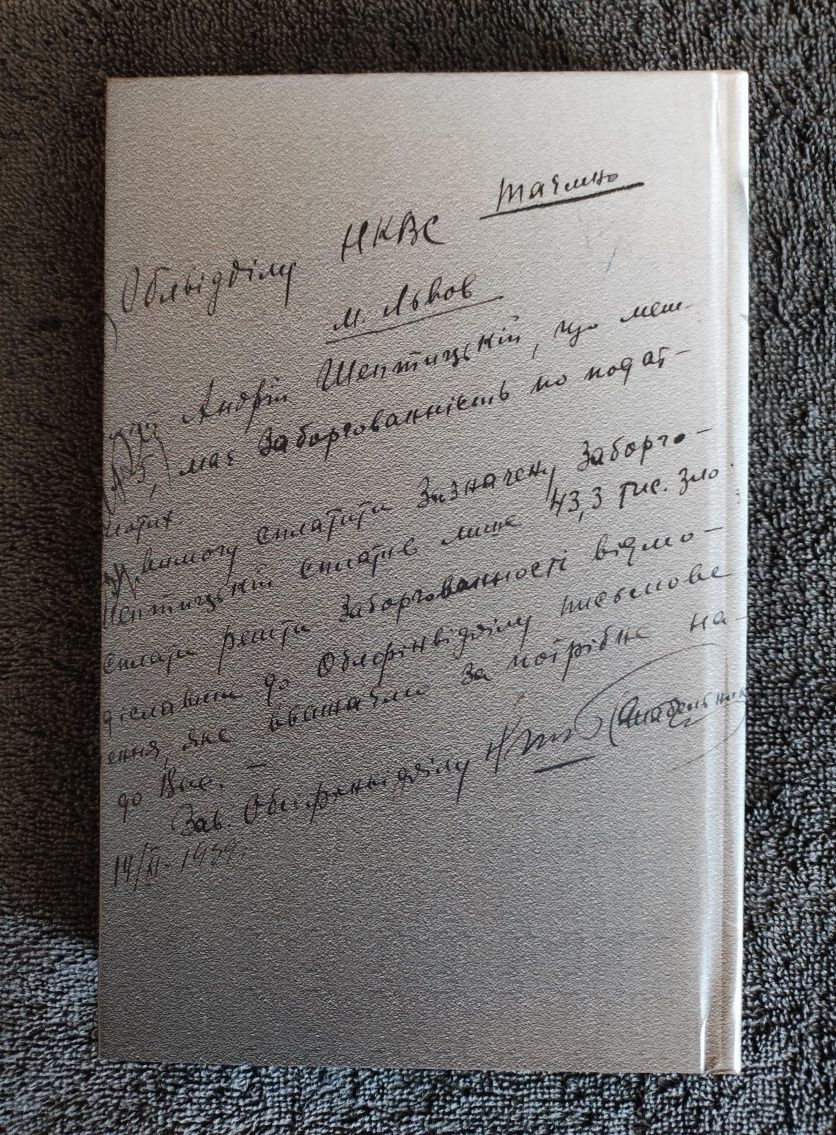 таємно
Облвідділу НКВС
м. Львов
Андрій Шептицькій, що меш-
5, має заборгованність по подат-
вимогу сплатити зазначену заборго-
Шептицькій сплатив лише 43,3 тис. зло
сплати решти заборгованності відмо-
діславши до Облфінвідділу письмове
ення, яке вважаємо за потрібне на-
до Вас. —
Зав. Облфінвідділу
14/XI-1939.